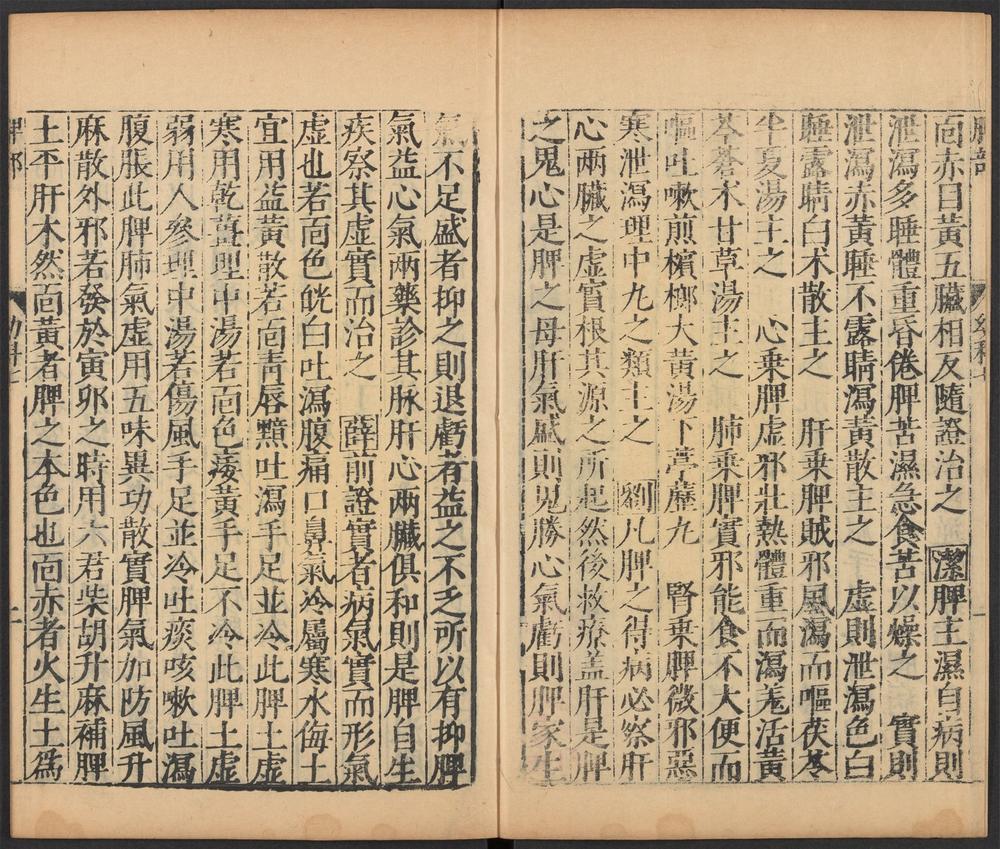 面赤目黃五臟相反隨證治之 潔脾主濕自病則
泄瀉多睡體重昏倦脾苦濕急食苦以燥之 實則
泄瀉赤黃睡不露睛瀉黃散主之 虛則泄瀉色白
睡露睛白朮散主之 肝乘脾賊邪風瀉而嘔茯苓
半夏湯主之 心乘脾虛邪壯熱體重而瀉羌活黃
芩蒼朮甘草湯主之 肺乘脾實邪能食不大便而
嘔吐嗽煎檳榔大黃湯下葶藶丸 腎乘脾微邪惡
寒泄瀉理中丸之類主之 劉凡脾之得病必察肝
心兩臟之虛實根其源之所起然後救療盖肝是脾
之鬼心是脾之母肝氣盛則鬼勝心氣虧則脾家生
氣不足盛者抑之則退虧者益之不乏所以有抑脾
氣益心氣兩藥診其脉肝心兩臟俱和則是脾自生
疾察其虛實而治之 薛前證實者病氣實而形氣
虛也若面色㿠白吐瀉腹痛口鼻氣冷屬寒水侮土
宜用益黃散若面青唇黯吐瀉手足並冷此脾土虛
寒用乾薑理中湯若面色痿黃手足不冷此脾土虛
弱用人參理中湯若傷風手足並冷吐痰咳嗽吐瀉
腹脹此脾肺氣虛用五味異功散實脾氣加防風升
麻散外邪若發於寅卯之時用六君柴胡升麻補脾
土平肝木然面黃者脾之本色也面赤者火生土爲